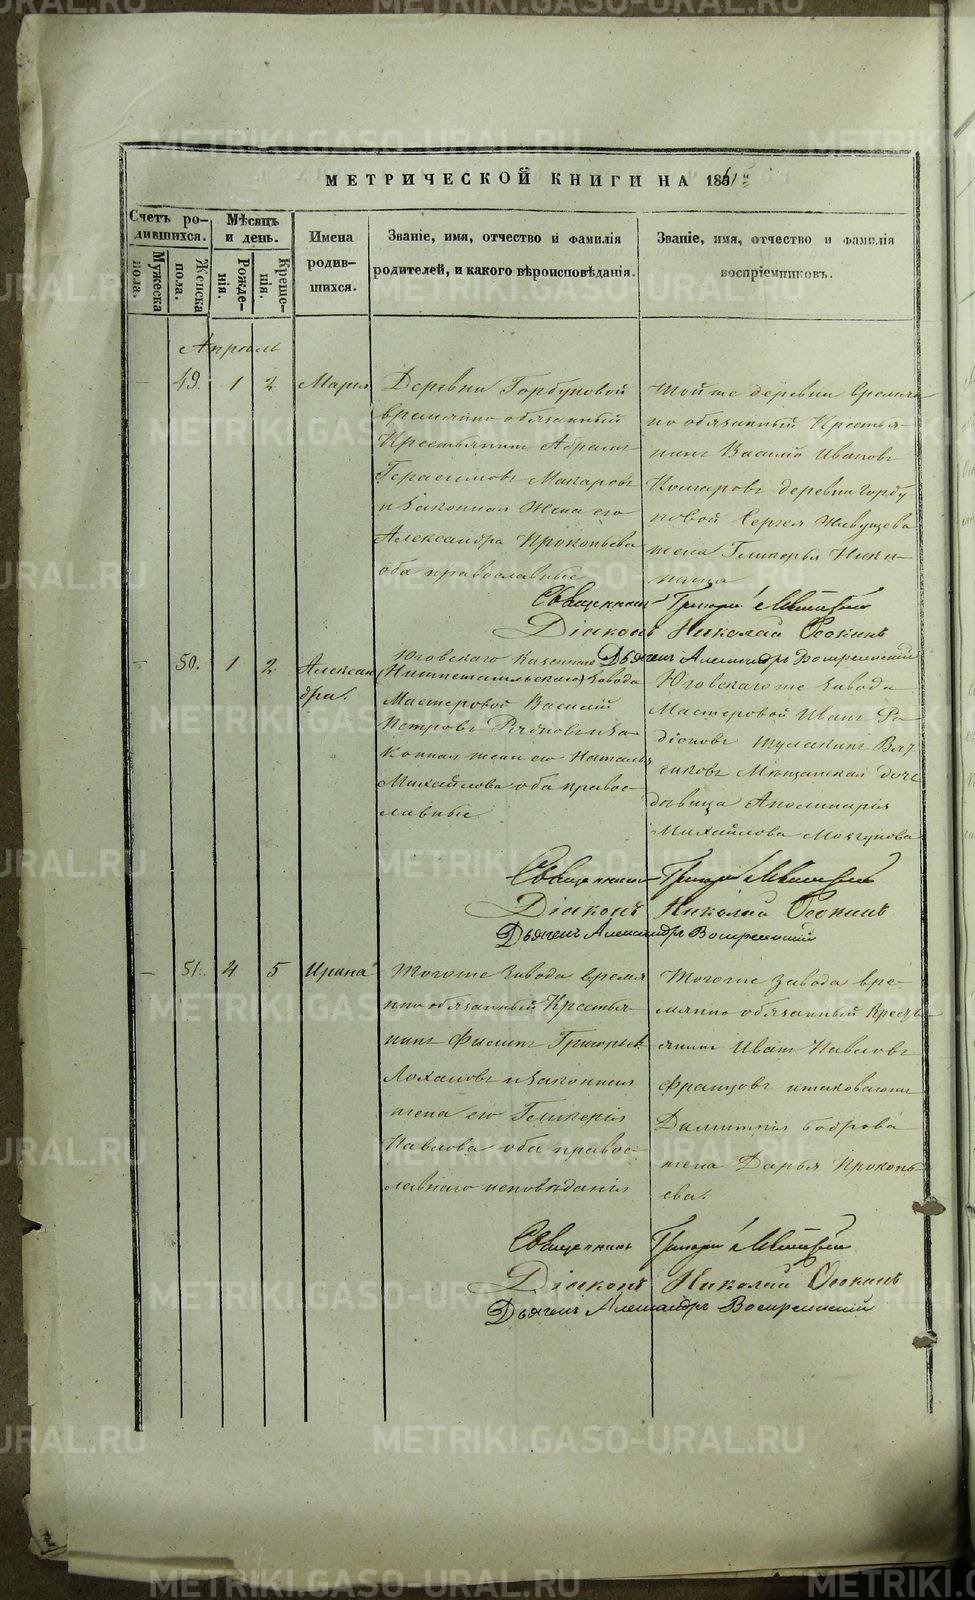 МЕТРИЧЕСКОЙ КНИГИ НА 1861
Счетъ родившихся.
Мужеска пола.
Женска пола.
Мѣсяцъ и день.
Рожденія.
Крещенія.
Имена родившихся.
Званіе, имя, отчество и фамилія
родителей, и какого вѣроисповѣданія.
Званіе, имя, отчество и фамилія
воспріемниковъ.
Апрѣль
49. 1 2 Марія
Деревни Горбуновой
временно обязанный
Крестьянинъ Абрамъ
Герасимовъ Макаровъ
и законная Жена его
Александра Прокопьева
оба православные
Той же деревни времен
но обязанный Крестья-
нинъ Василій Ивановъ
Комаровъ деревни Горбу
новой Сергея
жена Гликерья Ники-
Священникъ Григорій
Діаконъ Николай Осокинъ
Дьячекъ Александръ Воскресенскій
50. 1 2 Алексан
дра.
Юговскаго Казеннаго
завода
Мастеровой Василій
Петровъ и за-
конная жена его Наталья
Михайлова оба право-
славные
Юговскаго же завода
Мастеровой Иванъ Ра-
діоновъ
Мещанская дочь
дѣвица Аполинарія
Михайлова
Священникъ Григорій
Діаконъ Николай Осокинъ
Дьячекъ Александръ Воскресенскій
51. 4 5 Ирина
Тогоже завода времен
но обязанный Крестья-
нинъ Филипъ Григорьев
Лохановъ и законная
жена его Гликерія
Павлова оба право-
славнаго исповѣданія
Тогоже завода вре-
менно обязанный Кресть
янинъ Иванъ Павловъ
Францовъ и таковагоже
Димитрія Боброва
жена Дарья Прокопь-
ева.
Священникъ Григорій
Діаконъ Николай Осокинъ
Дьячекъ Александръ Воскресенскій
METRIKI.GASO-URAL.RU